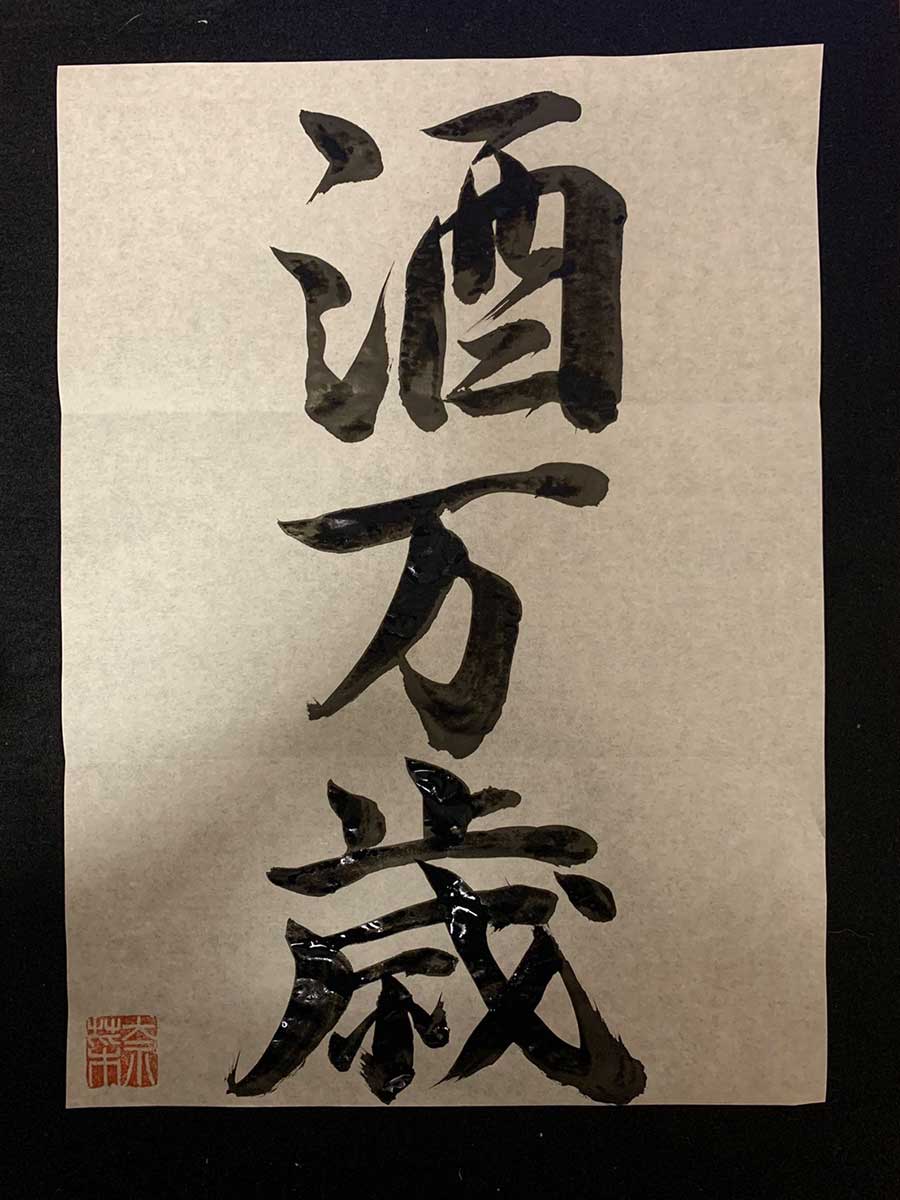 酒万歳